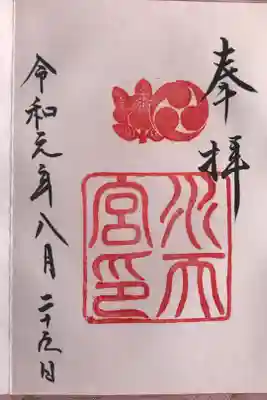 奉拝
水天宮印
令和元年八月二十九日